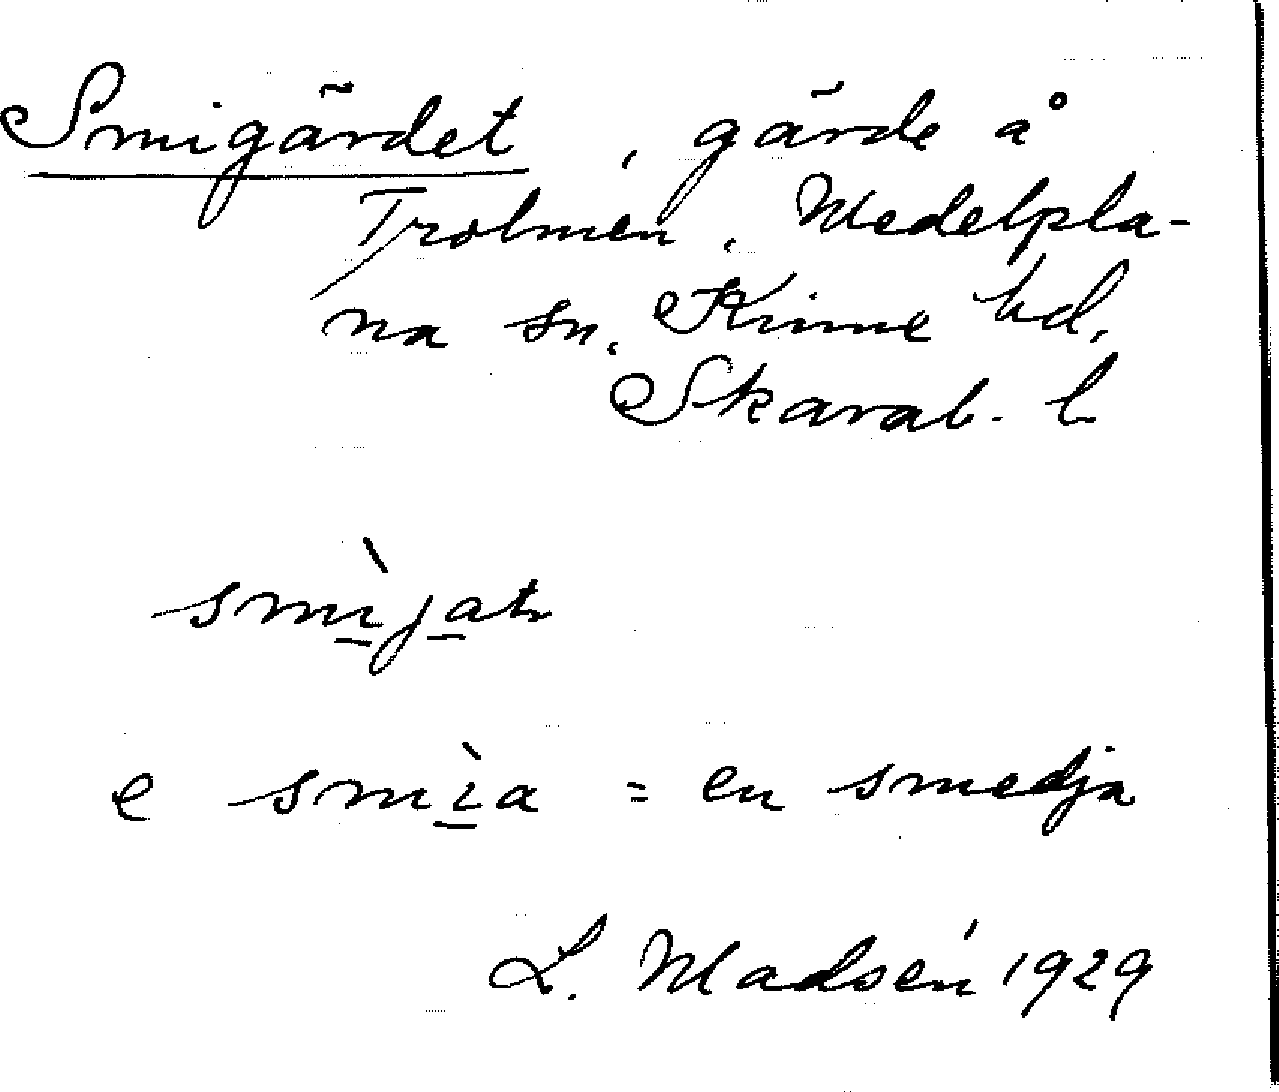 Smigärdet, gärde å
Trolmen, Medelpla-
na sn, Kinne hd,
Skarab. l
smìjat
e smìa = en smedja
L. Madsén 1929